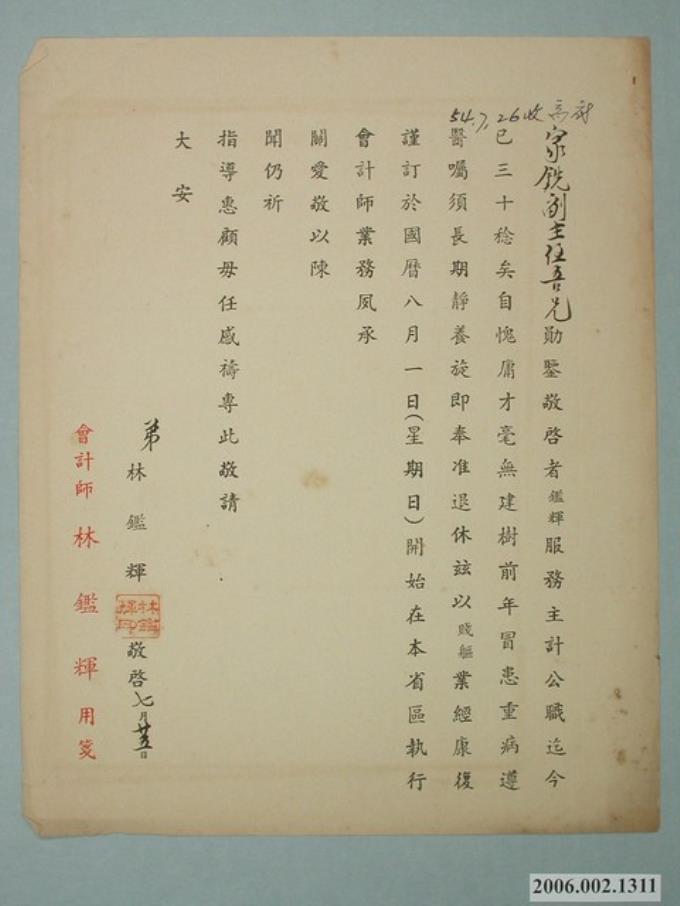 54.7.26收 高雄
家銑副主任吾兄勛鑒敬啓者鑑輝服務主計公職迄今
已三十稔矣自愧庸才毫無建樹前年冒患重病遵
醫囑須長期靜養旋即奉准退休玆以賤軀業經康復
謹訂於國曆八月一日(星期日)開始在本省區執行
會計師業務夙承
關愛敬以陳
聞仍祈
指導惠顧毋任感禱專此敬請
大安
弟林鑑輝敬啓七月廿五日
林鑑輝印
會計師林鑑輝用箋
2006.002.1311